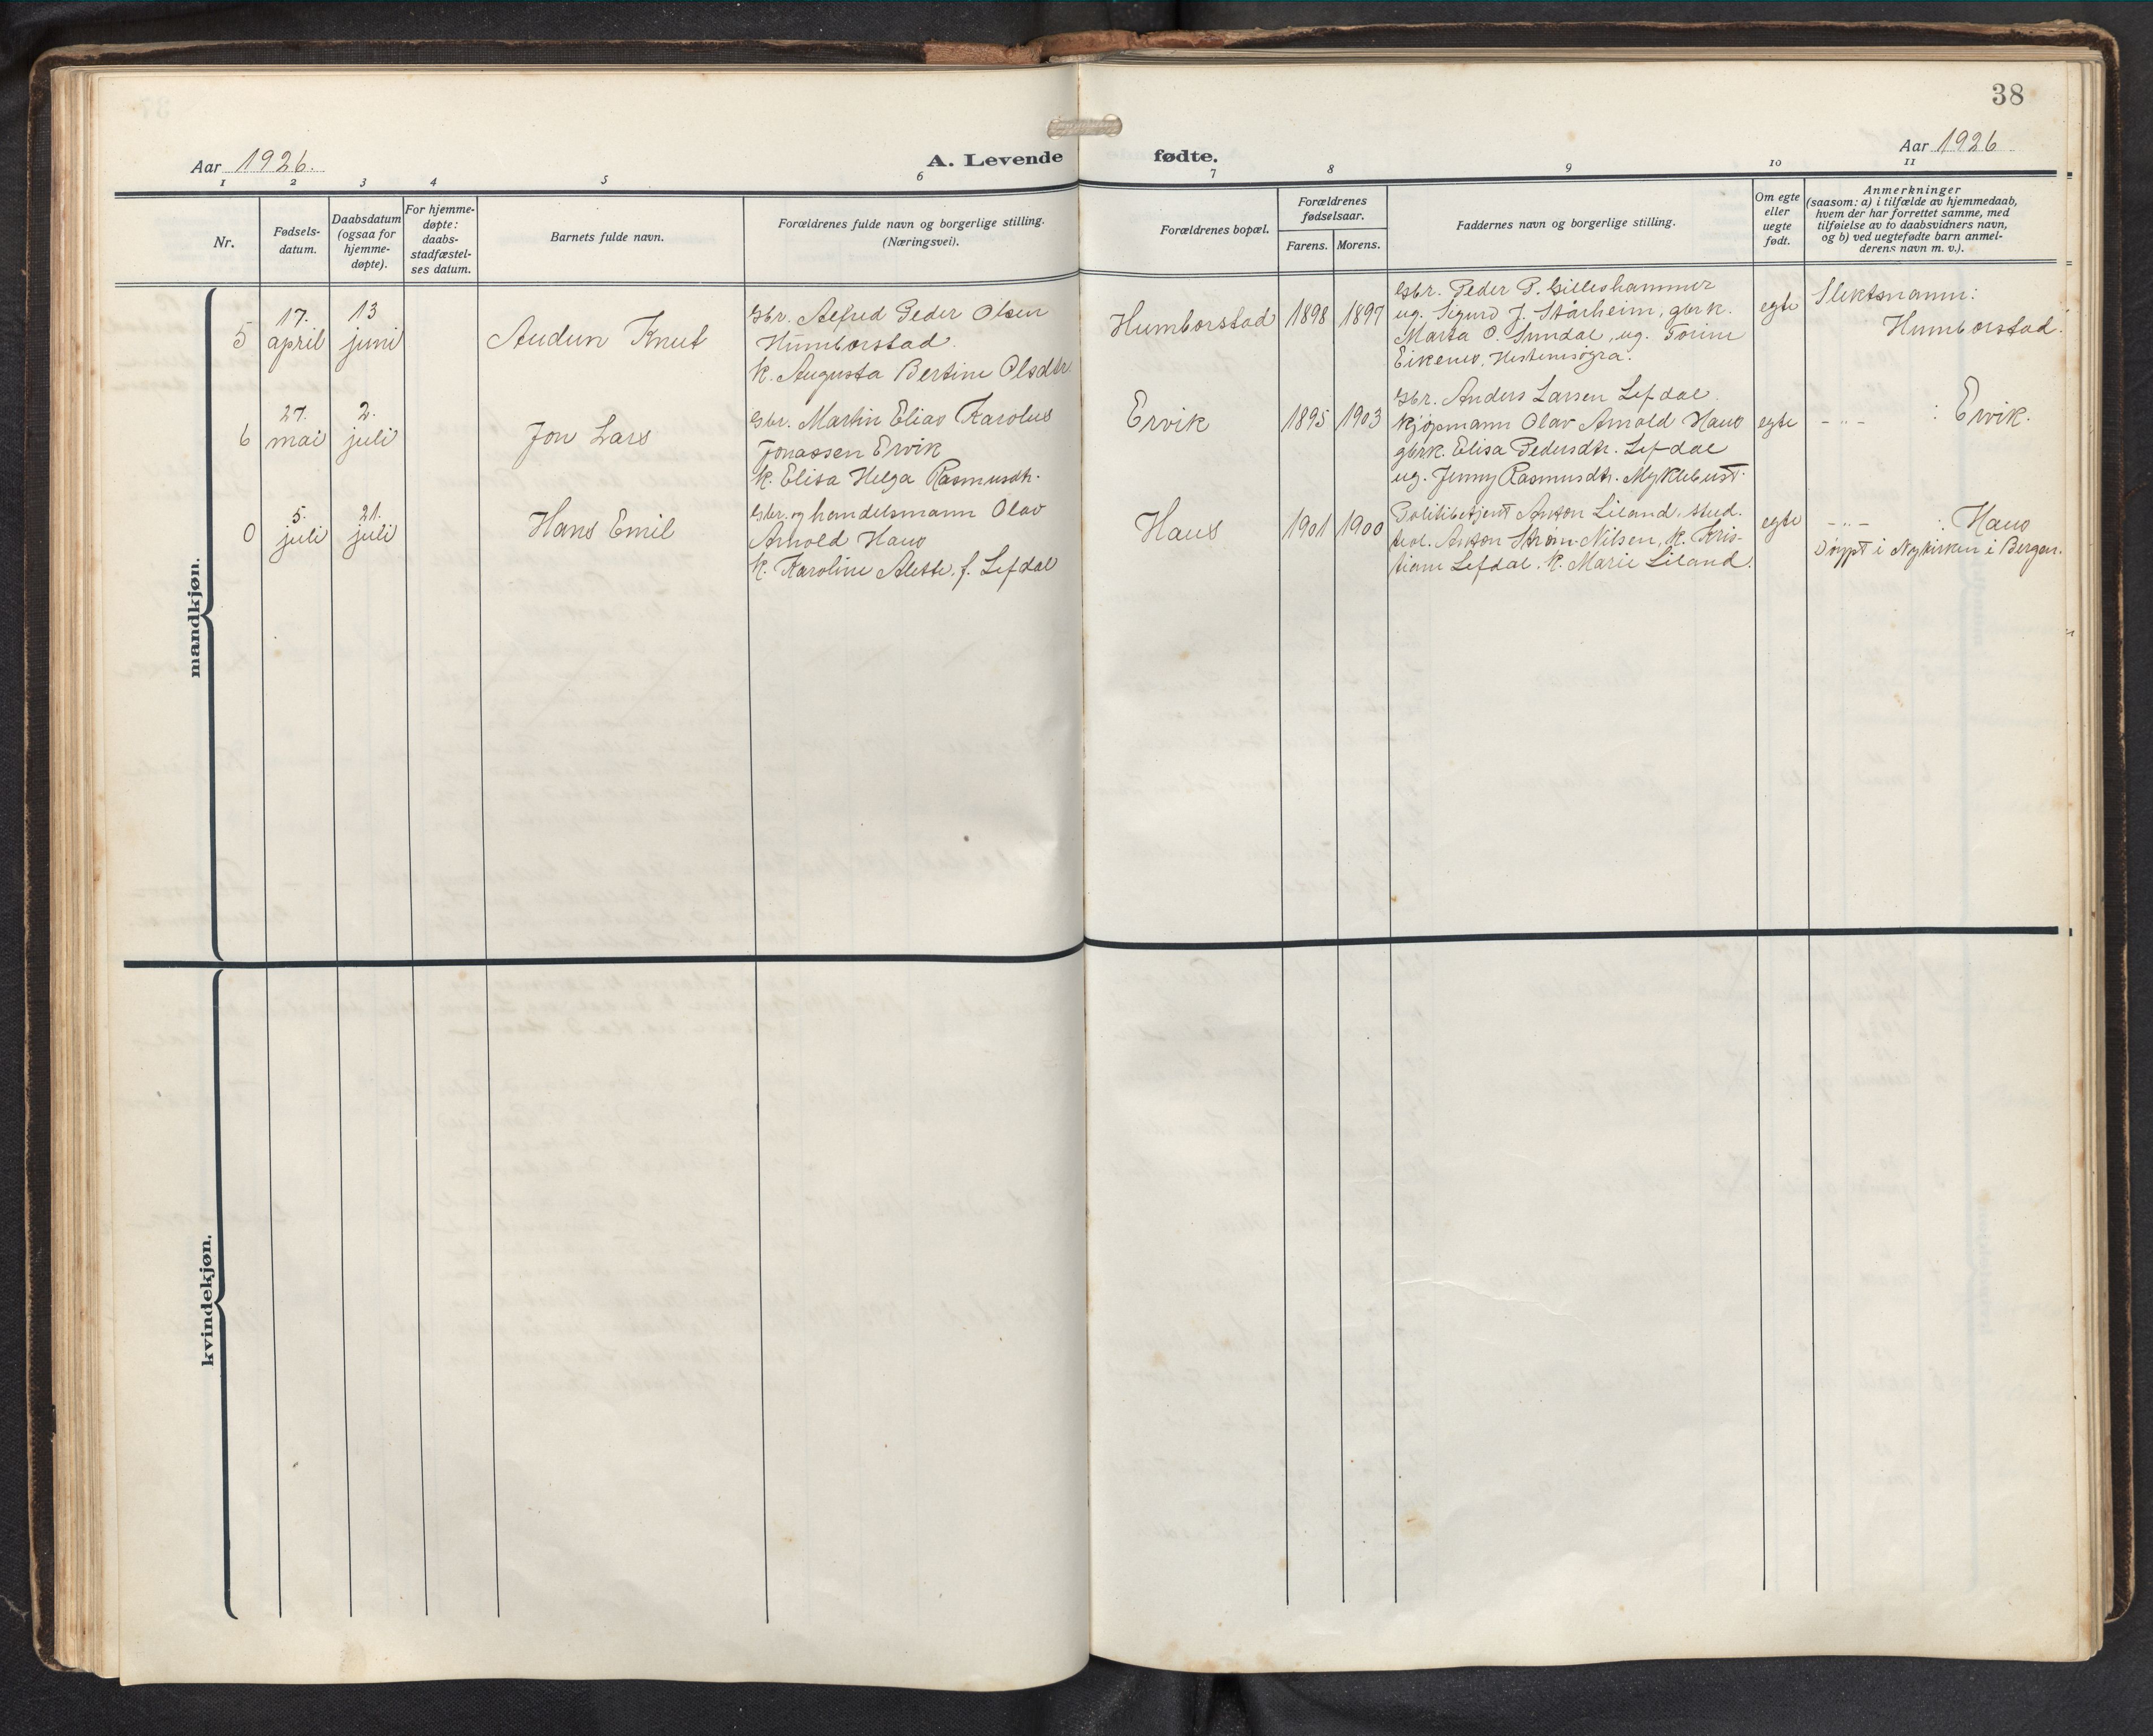 38
Aar 1926.
A. Levende fødte.
Aar 1926
1 2 3 4 5 6 7 8 9 10 11
Nr.
Fødsels-
datum.
Daabsdatum
(ogsaa for
hjemme-
døpte).
For hjemme-
døpte:
daabs-
stadfæstel-
ses datum.
Barnets fulde navn.
Forældrenes fulde navn og borgerlige stilling.
(Næringsvei).
Forældrenes bopæl.
Forældrenes
fødselsaar.
Farens. Morens.
Faddernes navn og borgerlige stilling.
Om egte
eller
uegte
født.
Anmerkninger
(saasom: a) i tilfælde av hjemmedaab,
hvem der har forrettet samme, med
tilføielse av to daabsvidners navn,
og b) ved uegtefødte barn anmel-
derens navn m. v.).
mandkjøn.
5
17.
april
13
juni
Audun Knut
Gbr. Alfred Peder Olsen
Humborstad.
k. Augusta Bertine Olsdtr.
Humborstad
1898
1897
Gbr. Peder P. Gilleshammer
ug. Sigurd J. Stårheim, gbrk.
Marta O. Sundal, ug. Torine
Eikenes, Hestenesøyra.
egte
Slektsnamn:
Humborstad.
6
27.
mai
2.
juli
Jon Lars
Gbr. Martin Elias Karolus
Jonassen Ervik
k. Elisa Helga Rasmusdtr.
Ervik
1895
1903
Gbr. Anders Larsen Lefdal.
Kjøpmann Olav Arnold Haus
gbrk. Elisa Pedersdtr. Lefdal
ug. Jenny Rasmusdtr. Myklebust.
egte
- " - : Ervik.
0
5.
juli
21.
juli
Hans Emil
Gbr. og handelsmann Olav
Arnold Haus
k. Karoline Alette, f. Lefdal
Haus
1901
1900
Politibetjent Anton Liland, stud.
Anton Strøm-Nilsen, k. Kris-
tiane Lefdal. k. Marie Liland.
egte
- " - : Haus
Døypt i Nykirken i Bergen.
kvindekjøn.